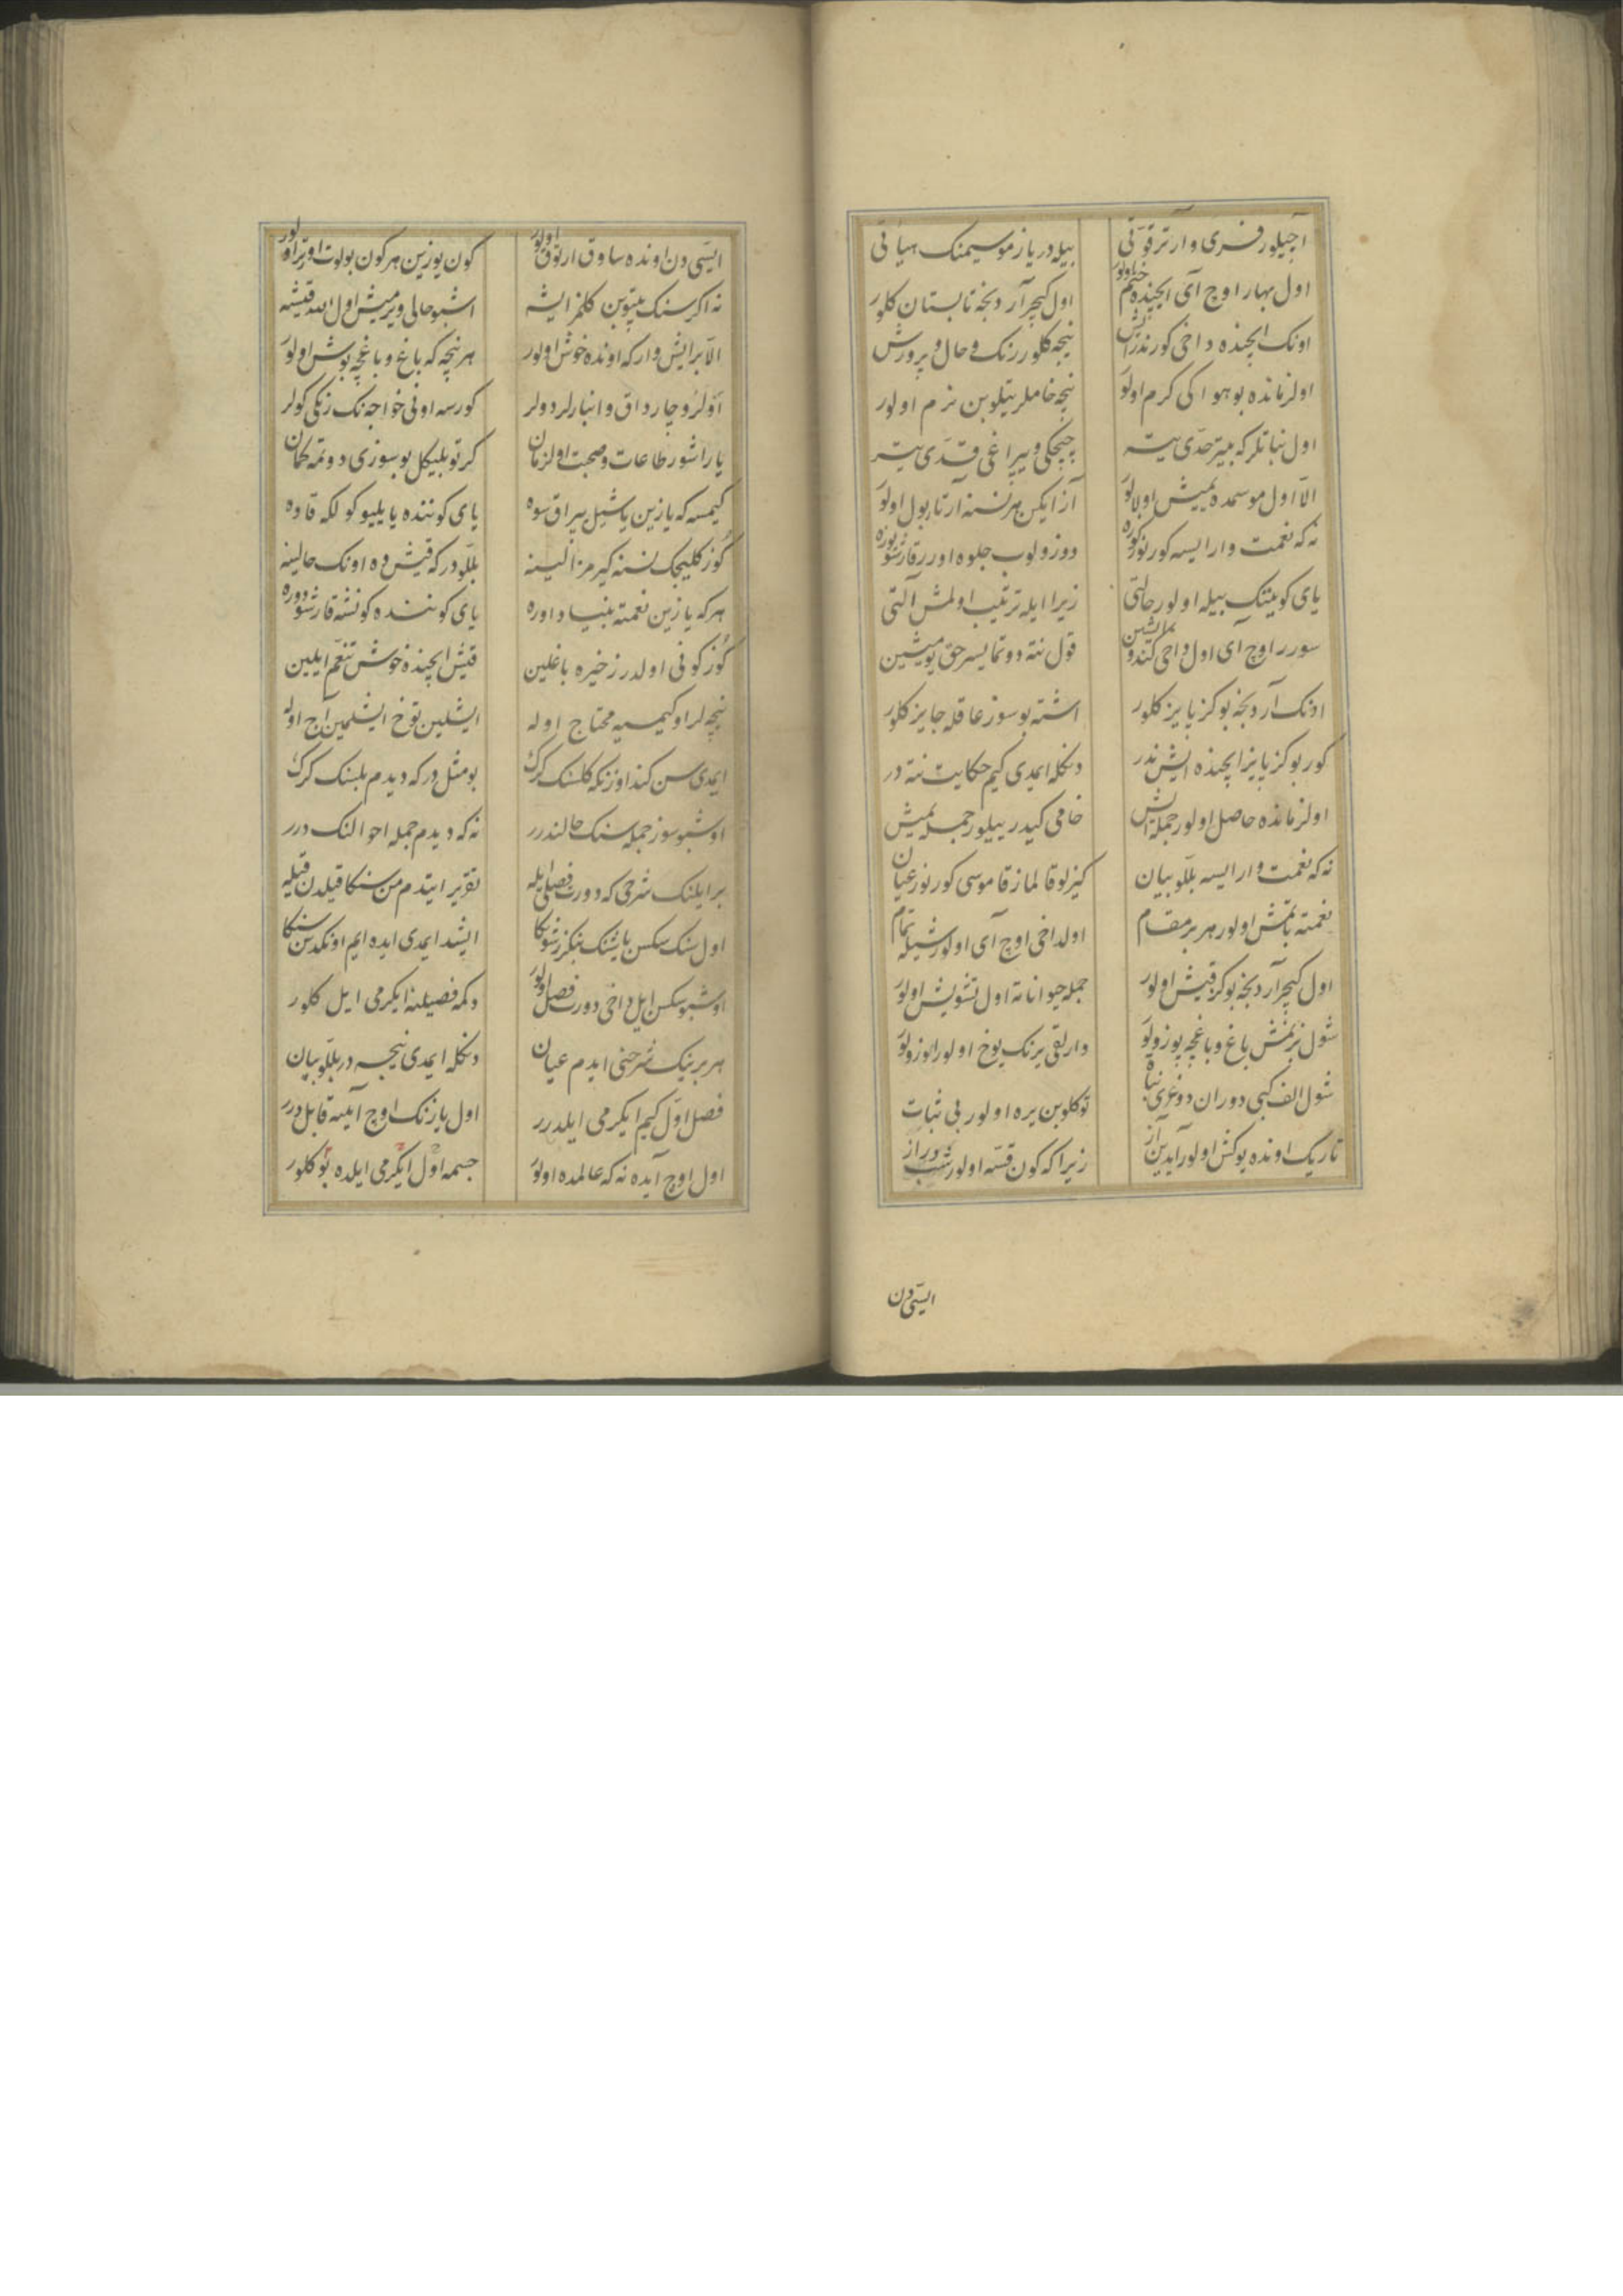 آچیلور فری وارتر قوتی بیله در یاز موسیمنک هیأتی
اول بهار اوچ آی ایچنده ختم اولور اول کیچر آردنجه تابستان کلور
اونک ایچنده داخی کور ندر ایش نیجه کلور رنک و حال و پرورش
اولزمانده بو هوا کی کرم اولور نیجه خاملر یتلوبن نرم اولور
اول نباتلر که بیتر حدی یته چیچکی و یپراغی قدی یته
الا اول موسمده یمیش اولا اولور آز ایکن هر نسنه آرتا بول اولور
نه که نعمت وار ایسه کورنور کوزه دوزولوب جلوه اورر قارشو یوزه
یای کونینک بیله اولور حالتی زیرا ایله ترتیب اولمش آلتی
سورر اوچ آی اول داخی کندو ایشین قول نته دوتمایسر حق بویمیشین
اونک آردنجه بو کز پاییز کلور اشته بو سوز عاقله جایز کلور
کور بو کز پاییز ایچنده ایش ندر دنکله ایمدی کیم حکایت نته در
اولزمانده حاصل اولور جمله ایش خامی کیدر بیلور جمله یمیش
نه که نعمت وار ایسه بللو بیان کیزلو قالماز قاموسی کورنور عیان
نعمته باتمش اولور هر بر مقام اولداخی اوچ آی اولور شیله تمام
اول کیچر آردنجه بو کز قیش اولور جمله حیوانانه اول تشویش اولور
شول بزنمش باغ و باغچه پوزولور وارلقی یرنک یوخ اولور اوزولور
شول الف کبی دوران دوغری نبات توکلوبن یره اولور بی ثبات
تاریک اونده یوکش اولور آیدین آز زیرا که کون قسه اولور شب دراز
ایسی دن
ایسی دن اونده ساوق ارتوق اولور کون یوزین هر کون بولوت اورتر اولور
نه اکرسنک بیتوبن کلمز ایشه اشبو حالی ویرمیش اول الله قیشه
الا بر ایش وار که اونده خوش اولور هر نیجه که باغ و باغچه بوش اولور
اولر و چارداق و انبارلر دولر کورسه اونی خواجه نک رنکی کولر
یاراشور طاعات و صحبت اولزمان کرتو بلیکل بو سوزی دوتمه کمان
کیمسه که یازین یاشیل یپراق سوه یای کوننده یایلیو کولکه قاوه
کوز کلیجک نسنه کیرمز الینه بللودر که قیش ده اونک حالینه
هر که یازین نعمته بنیاد اوره یای کوننده کونشه قارشو دوره
کوز کونی اولدر زخیره باغلین قیش ایچنده خوش تنعم ایلین
نیچه لر او کیمسیه محتاج اوله ایشلین توخ ایشلمین آج اوله
ایمدی سن کند اوزنکه کلسنک کرک بو مثل در که دیدم بلسنک کرک
اوشبو سوز جمله سنک حالندرر نه که دیدم جمله احوالنک درر
بر ایلنک شرحی که دورت فصل ایله تقریر ایتدم من سنکا قیلدن قیله
اول سنک سکسن یاشنک بنکزر شونکا ایشد ایمدی ایده ایم اوندن سنکا
اوشبو سکسن ایل داخی دورت فصل اولور دکمه فصیلنه ایکرمی ایل کلور
هر برینک شرحنی ایدم عیان دنکله ایمدی نیجه در بللو بیان
فصل اول کیم ایکرمی ایلدرر اول یازنک اوچ آیینه قابلدرر
اول اوچ آیده نه که عالمده اولور جسمه اول ایکرمی ایلده بو کلور